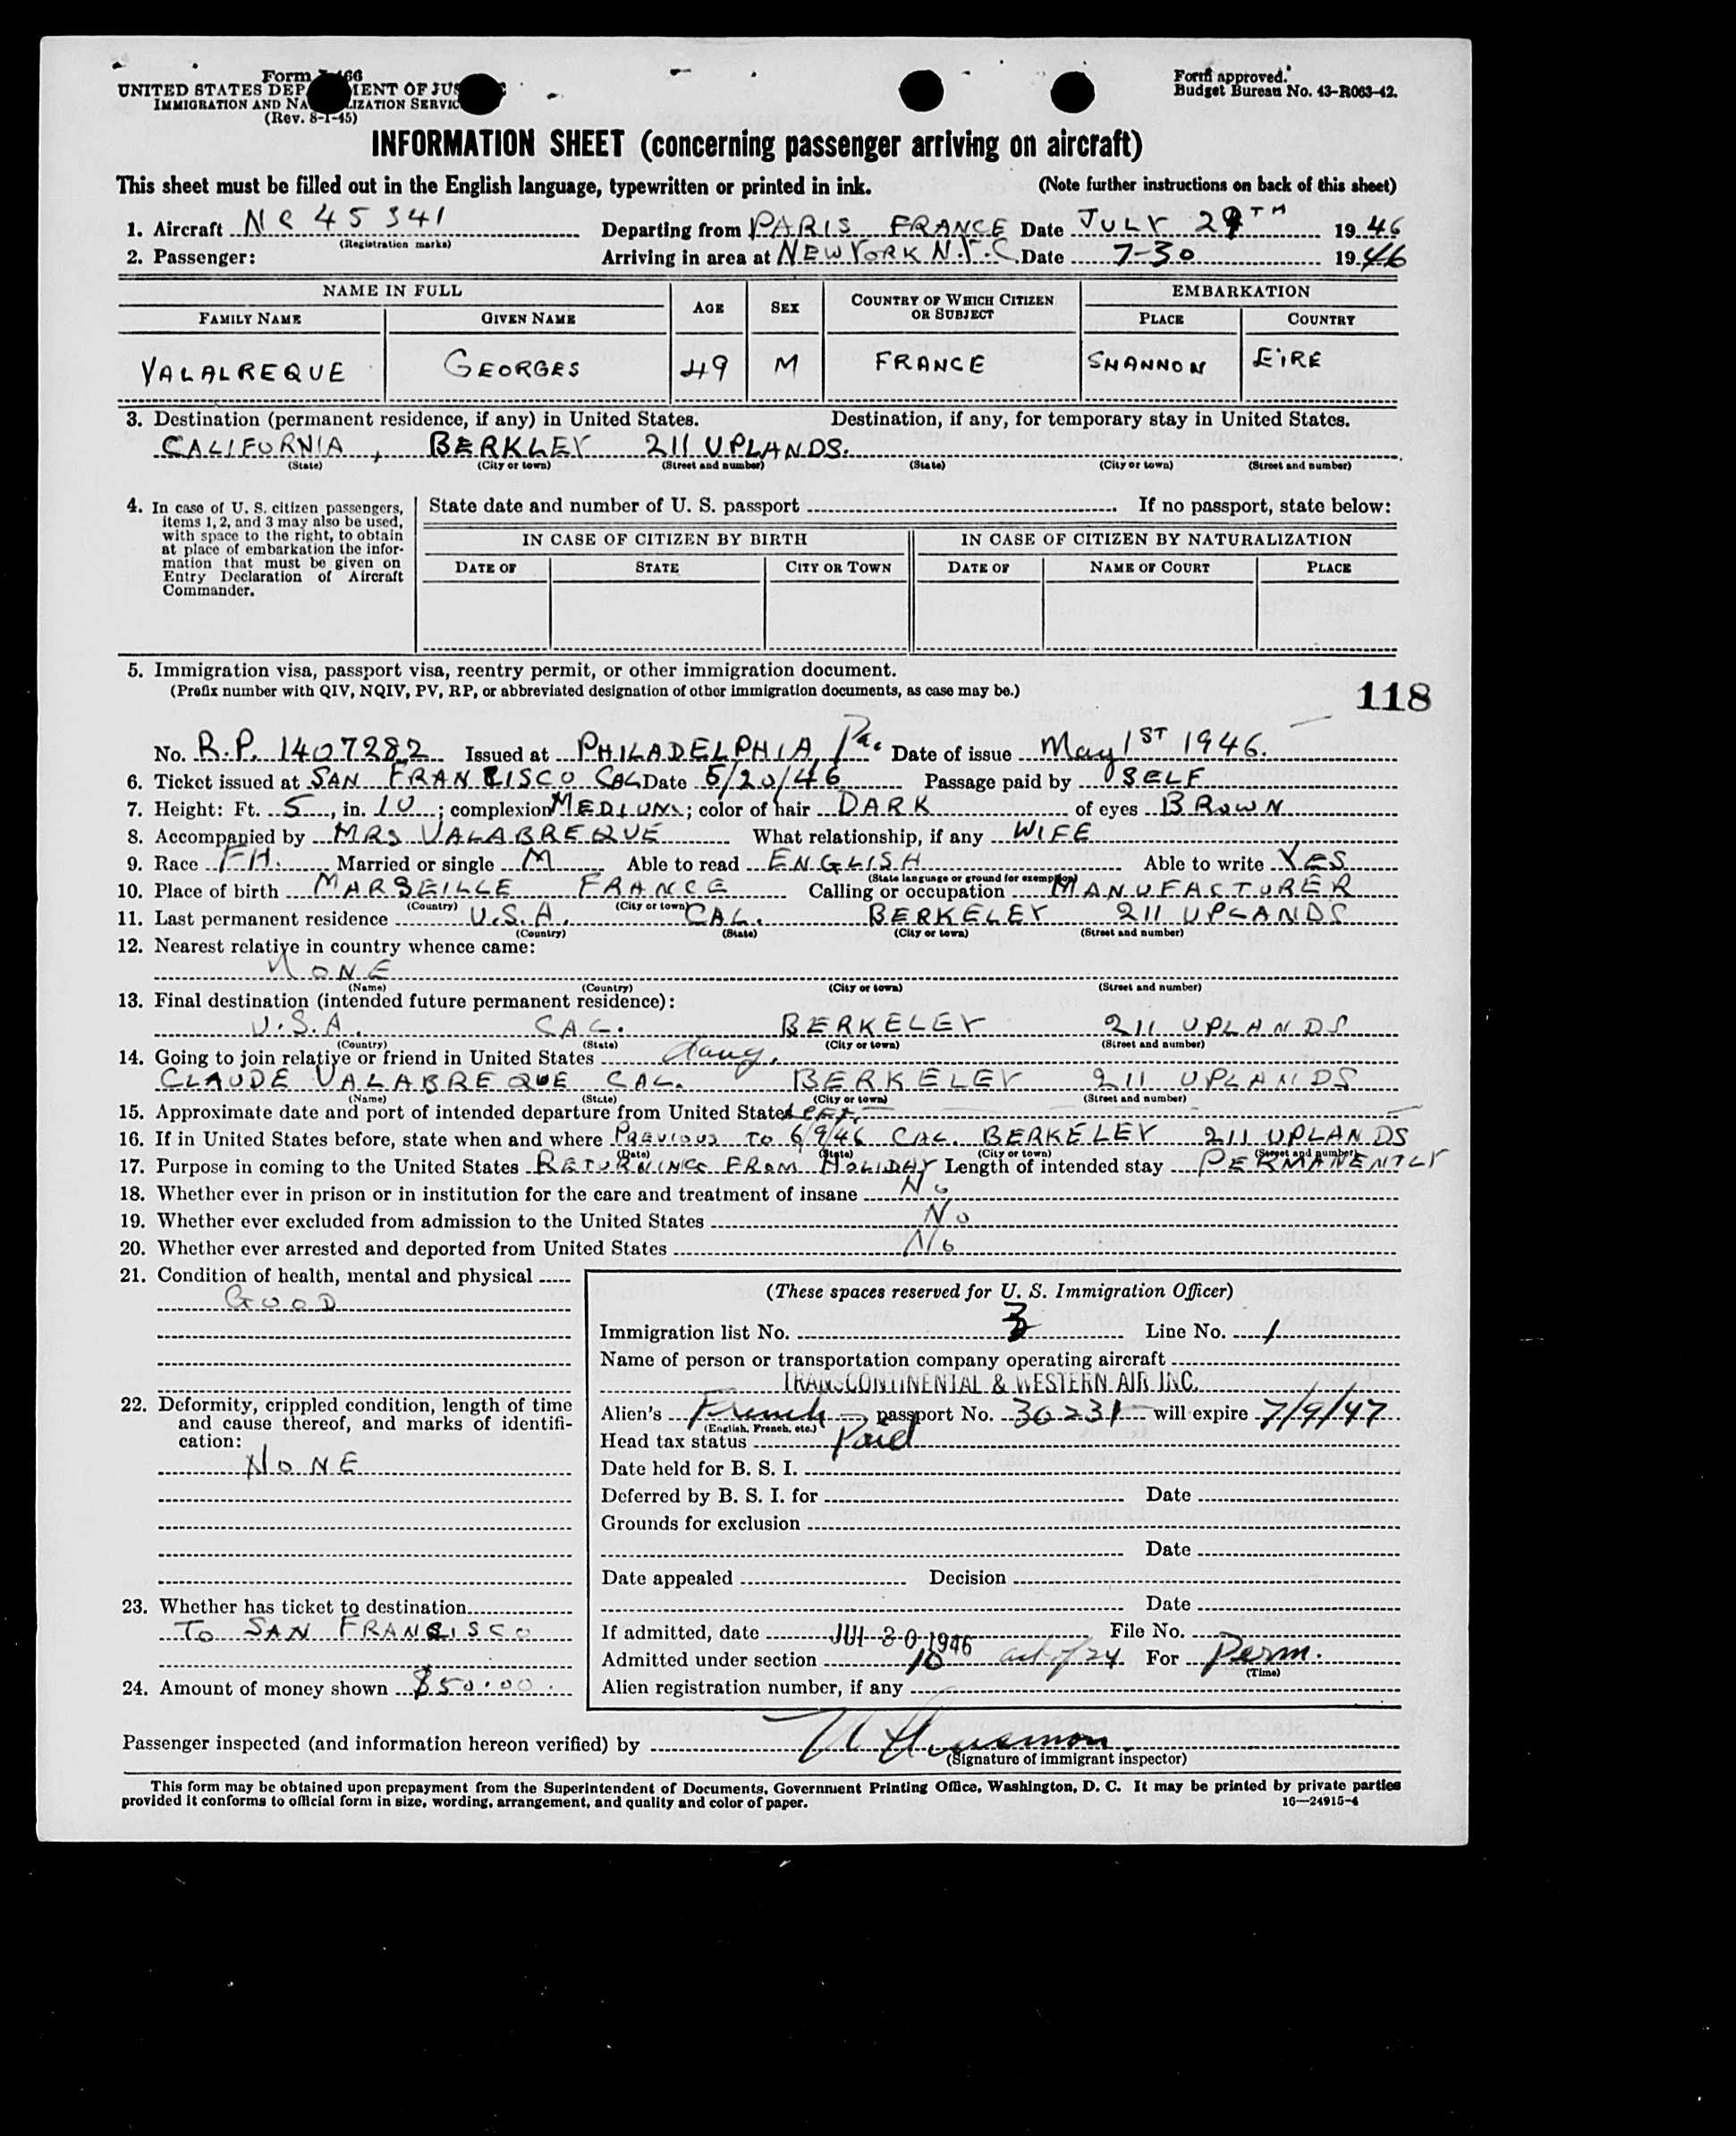 Form I-466
UNITED STATES DEPARTMENT OF JUSTICE
IMMIGRATION AND NATURALIZATION SERVICE
(Rev. 8-1-45)
Form approved.
Budget Bureau No. 43-R063-42.
INFORMATION SHEET (concerning passenger arriving on aircraft)
This sheet must be filled out in the English language, typewritten or printed in ink. (Note further instructions on back of this sheet)
1. Aircraft NC 45341 Departing from PARIS FRANCE Date JULY 29TH 1946
(Registration marks)
2. Passenger: Arriving in area at NEW YORK N.Y.C. Date 7-30 1946
NAME IN FULL AGE SEX COUNTRY OF WHICH CITIZEN OR SUBJECT EMBARKATION
FAMILY NAME GIVEN NAME PLACE COUNTRY
VALALREQUE GEORGES 49 M FRANCE SHANNON EIRE
3. Destination (permanent residence, if any) in United States. Destination, if any, for temporary stay in United States.
CALIFORNIA, BERKLEY 211 UPLANDS.
(State) (City or town) (Street and number) (State) (City or town) (Street and number)
4. In case of U. S. citizen passengers, items 1, 2, and 3 may also be used, with space to the right, to obtain at place of embarkation the information that must be given on Entry Declaration of Aircraft Commander.
State date and number of U. S. passport If no passport, state below:
IN CASE OF CITIZEN BY BIRTH IN CASE OF CITIZEN BY NATURALIZATION
DATE OF STATE CITY OR TOWN DATE OF NAME OF COURT PLACE
5. Immigration visa, passport visa, reentry permit, or other immigration document.
(Prefix number with QIV, NQIV, PV, RP, or abbreviated designation of other immigration documents, as case may be.)
118
No. R.P. 1407282 Issued at PHILADELPHIA, Pa. Date of issue May 1ST 1946.
6. Ticket issued at SAN FRANCISCO CAL Date 5/20/46 Passage paid by SELF
7. Height: Ft. 5, in. 10; complexion MEDIUM; color of hair DARK of eyes BROWN
8. Accompanied by MRS VALABREQUE What relationship, if any WIFE
9. Race FH. Married or single M Able to read ENGLISH Able to write YES
(State language or ground for exemption)
10. Place of birth MARSEILLE FRANCE Calling or occupation MANUFACTURER
(Country) (City or town)
11. Last permanent residence U.S.A. CAL. BERKELEY 211 UPLANDS
(Country) (State) (City or town) (Street and number)
12. Nearest relative in country whence came:
NONE
(Name) (Country) (City or town) (Street and number)
13. Final destination (intended future permanent residence):
U.S.A. CAL. BERKELEY 211 UPLANDS
(Country) (State) (City or town) (Street and number)
14. Going to join relative or friend in United States daug.
CLAUDE VALABREQUE CAL. BERKELEY 211 UPLANDS
(Name) (State) (City or town) (Street and number)
15. Approximate date and port of intended departure from United States
16. If in United States before, state when and where PREVIOUS TO 6/9/46 CAL. BERKELEY 211 UPLANDS
(Date) (State) (City or town) (Street and number)
17. Purpose in coming to the United States RETURNING FROM HOLIDAY Length of intended stay PERMANENTLY
18. Whether ever in prison or in institution for the care and treatment of insane No
19. Whether ever excluded from admission to the United States No
20. Whether ever arrested and deported from United States No
21. Condition of health, mental and physical
GOOD
22. Deformity, crippled condition, length of time and cause thereof, and marks of identification:
NONE
23. Whether has ticket to destination
TO SAN FRANCISCO
24. Amount of money shown $50.00
(These spaces reserved for U. S. Immigration Officer)
Immigration list No. 3 Line No. 1
Name of person or transportation company operating aircraft
TRANSCONTINENTAL & WESTERN AIR INC.
Alien's French passport No. 30231 will expire 7/9/47
(English, French, etc.)
Head tax status Paid
Date held for B. S. I.
Deferred by B. S. I. for Date
Grounds for exclusion
Date
Date appealed Decision
Date
If admitted, date JUL 30 1946 File No.
Admitted under section 10 act of 24 For Perm.
(Time)
Alien registration number, if any
Passenger inspected (and information hereon verified) by
(Signature of immigrant inspector)
This form may be obtained upon prepayment from the Superintendent of Documents, Government Printing Office, Washington, D. C. It may be printed by private parties
provided it conforms to official form in size, wording, arrangement, and quality and color of paper. 16—24915-4